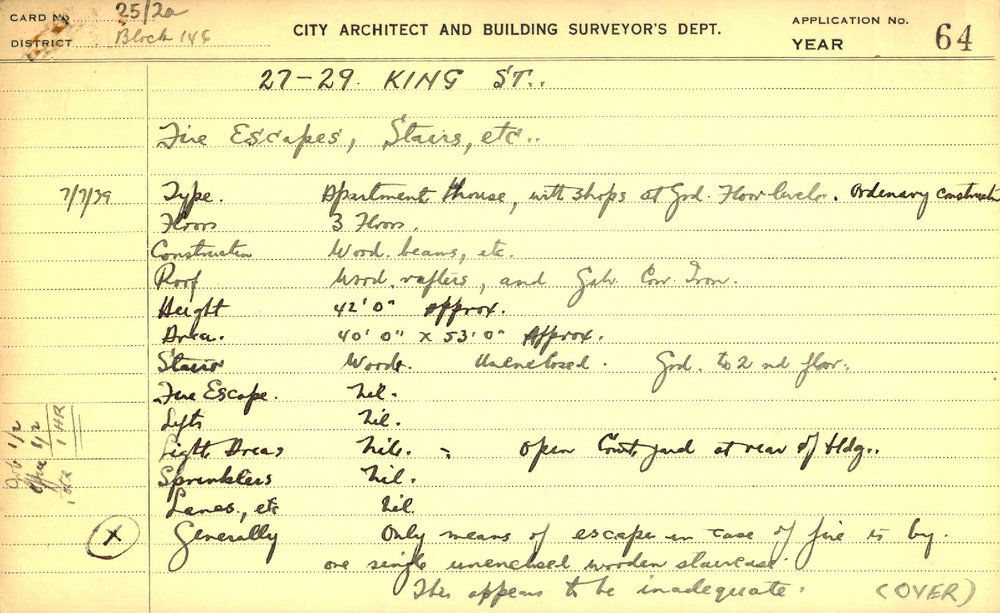 CARD No 25/2a
DISTRICT Block 146
CITY ARCHITECT AND BUILDING SURVEYOR'S DEPT.
APPLICATION No.
YEAR
64
27-29. KING ST..
Fire Escapes, Stairs, etc..
7/7/39 Type. Apartment House, with shops at Grd. Floor level. Ordinary Construction
Floors 3 Floors.
Construction Wood. beams, etc.
Roof Wood. rafters, and Galv. Corr. Iron.
Height 42' 0" Approx.
Area. 40' 0" x 53' 0" Approx.
Stairs Wood. Unenclosed. Grd. to 2nd floor.
Fire Escape. Nil.
Lifts Nil.
Light Areas Nil. - Open Court yard at rear of bldg..
Sprinklers Nil.
Lanes, etc Nil.
X Generally Only means of escape in case of fire is by.
one single unenclosed wooden staircase.
This appears to be inadequate. (OVER)
Job 1/2
Office 1/2
1 HR